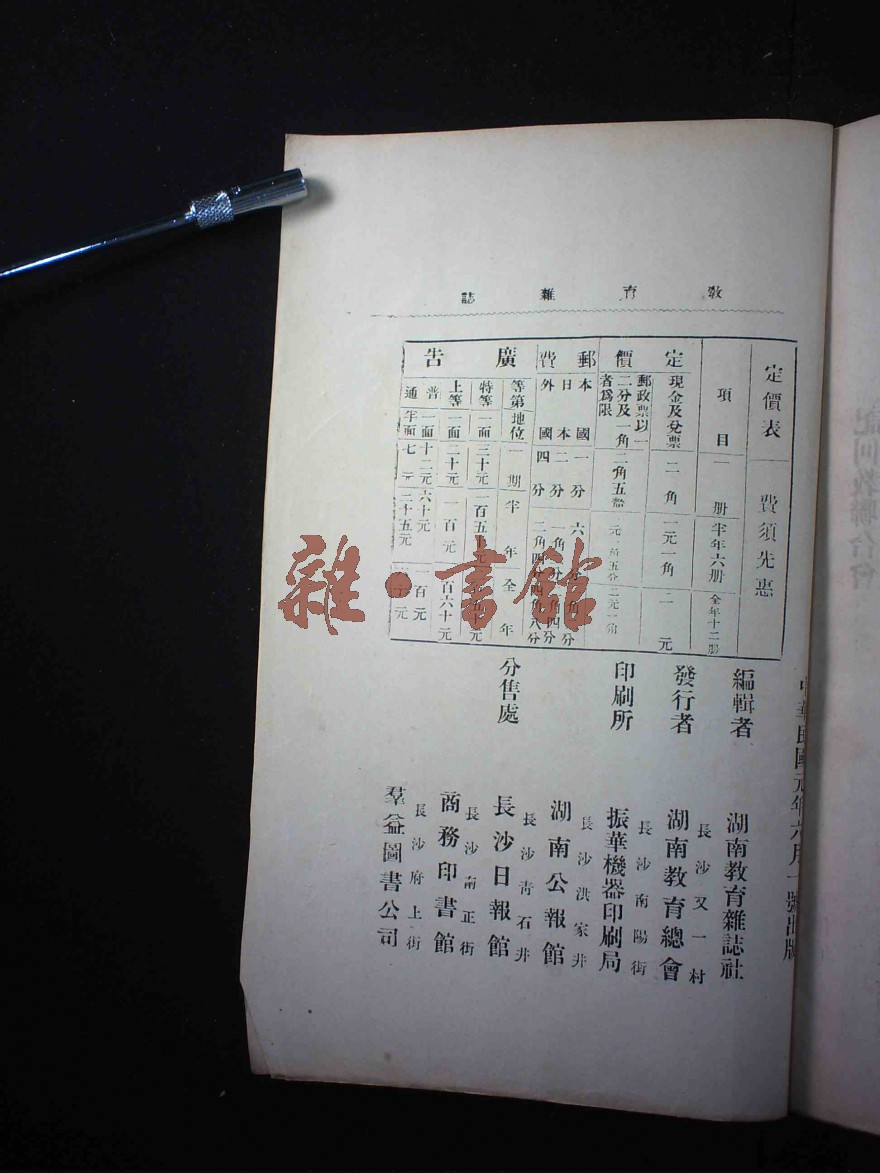 教育雜誌
中華民國元年六月一號出版
定價表 費須先惠
項目 一册 半年六册 全年十二册
定價
現金及兌票 二角 一元一角 二元
郵政票以一二分及一角者爲限 二角五分
郵費
本國 一分 六分
日本 二分 一角
外國 四分 二角四分 四角八分
廣告
等第 地位 一期 半年 全年
特等 一面 三十元
上等 一面 二十元 一百元 百六十元
普通 一面 十二元 六十元 一百元
半面 七元 三十五元
編輯者 湖南教育雜誌社
長沙又一村
發行者 湖南教育總會
長沙南陽街
印刷所 振華機器印刷局
長沙洪家井
分售處 湖南公報館
長沙青石井
長沙日報館
長沙南正街
商務印書館
長沙府上街
羣益圖書公司
雜·書館